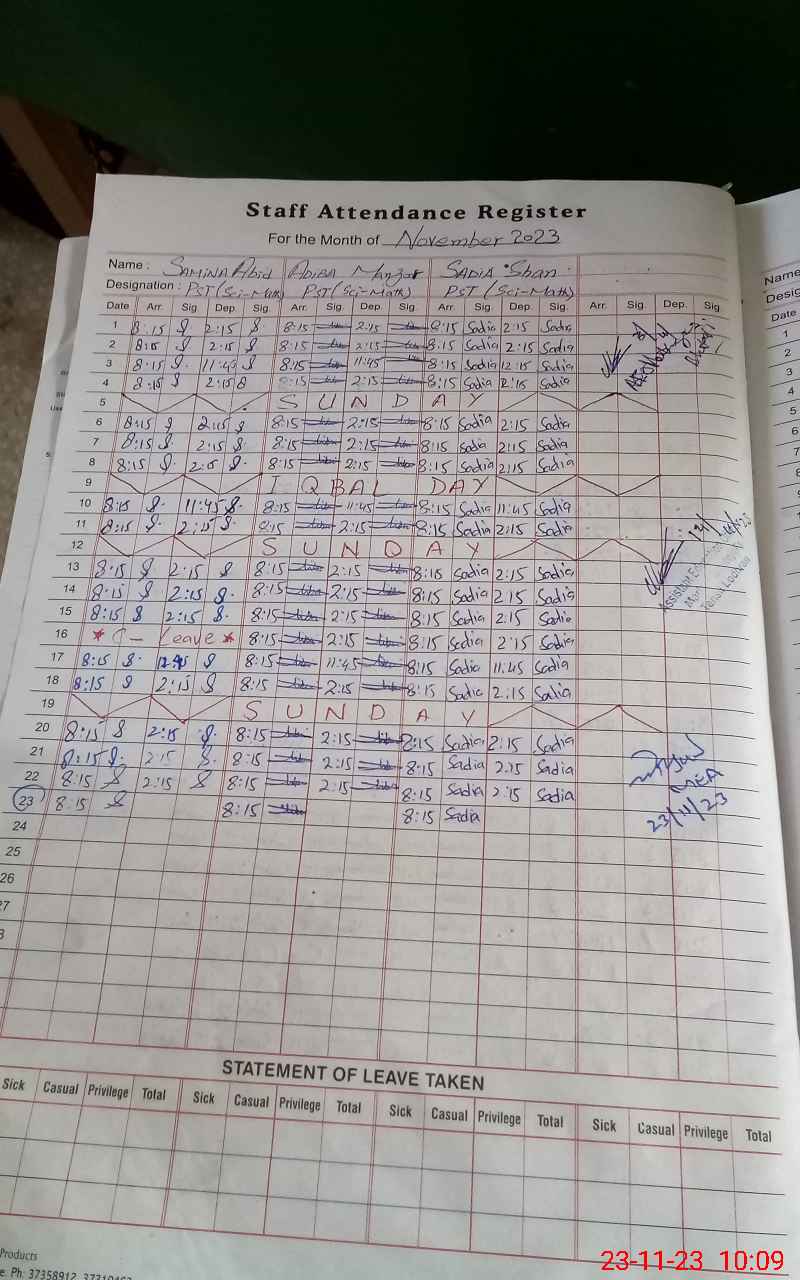 Staff Attendance Register
For the Month of November 2023
Name : Samina Abid Adiba Manzar Sadia Shan
Designation : PST (Sci-Math) PST (Sci-Math) PST (Sci-Math)
Date Arr. Sig Dep. Sig. Arr. Sig. Dep. Sig. Arr. Sig. Dep. Sig. Arr. Sig. Dep. Sig.
1 8:15 2:15 8:15 2:15 8:15 Sadia 2:15 Sadia
2 8:15 2:15 8:15 2:15 8:15 Sadia 2:15 Sadia
3 8:15 11:45 8:15 11:45 8:15 Sadia 12:15 Sadia
4 8:15 2:15 8:15 2:15 8:15 Sadia 2:15 Sadia
5 SUNDAY
6 8:15 2:15 8:15 2:15 8:15 Sadia 2:15 Sadia
7 8:15 2:15 8:15 2:15 8:15 Sadia 2:15 Sadia
8 8:15 2:15 8:15 2:15 8:15 Sadia 2:15 Sadia
9 IQBAL DAY
10 8:15 11:45 8:15 11:45 8:15 Sadia 11:45 Sadia
11 8:15 2:15 8:15 2:15 8:15 Sadia 2:15 Sadia
12 SUNDAY
13 8:15 2:15 8:15 2:15 8:15 Sadia 2:15 Sadia
14 8:15 2:15 8:15 2:15 8:15 Sadia 2:15 Sadia
15 8:15 2:15 8:15 2:15 8:15 Sadia 2:15 Sadia
16 * C- Leave * 8:15 2:15 8:15 Sadia 2:15 Sadia
17 8:15 8:15 11:45 8:15 Sadia 11:45 Sadia
18 8:15 2:15 8:15 2:15 8:15 Sadia 2:15 Sadia
19 SUNDAY
20 8:15 2:15 8:15 2:15 8:15 Sadia 2:15 Sadia
21 8:15 2:15 8:15 2:15 8:15 Sadia 2:15 Sadia
22 8:15 2:15 8:15 2:15 8:15 Sadia 2:15 Sadia
23 8:15 8:15 8:15 Sadia
MEA
23/11/23
24
25
26
27
STATEMENT OF LEAVE TAKEN
Sick Casual Privilege Total Sick Casual Privilege Total Sick Casual Privilege Total Sick Casual Privilege Total
Products
e. Ph: 37358912
Name
Date
1
2
3
4
5
6
7
8
9
10
11
23-11-23 10:09